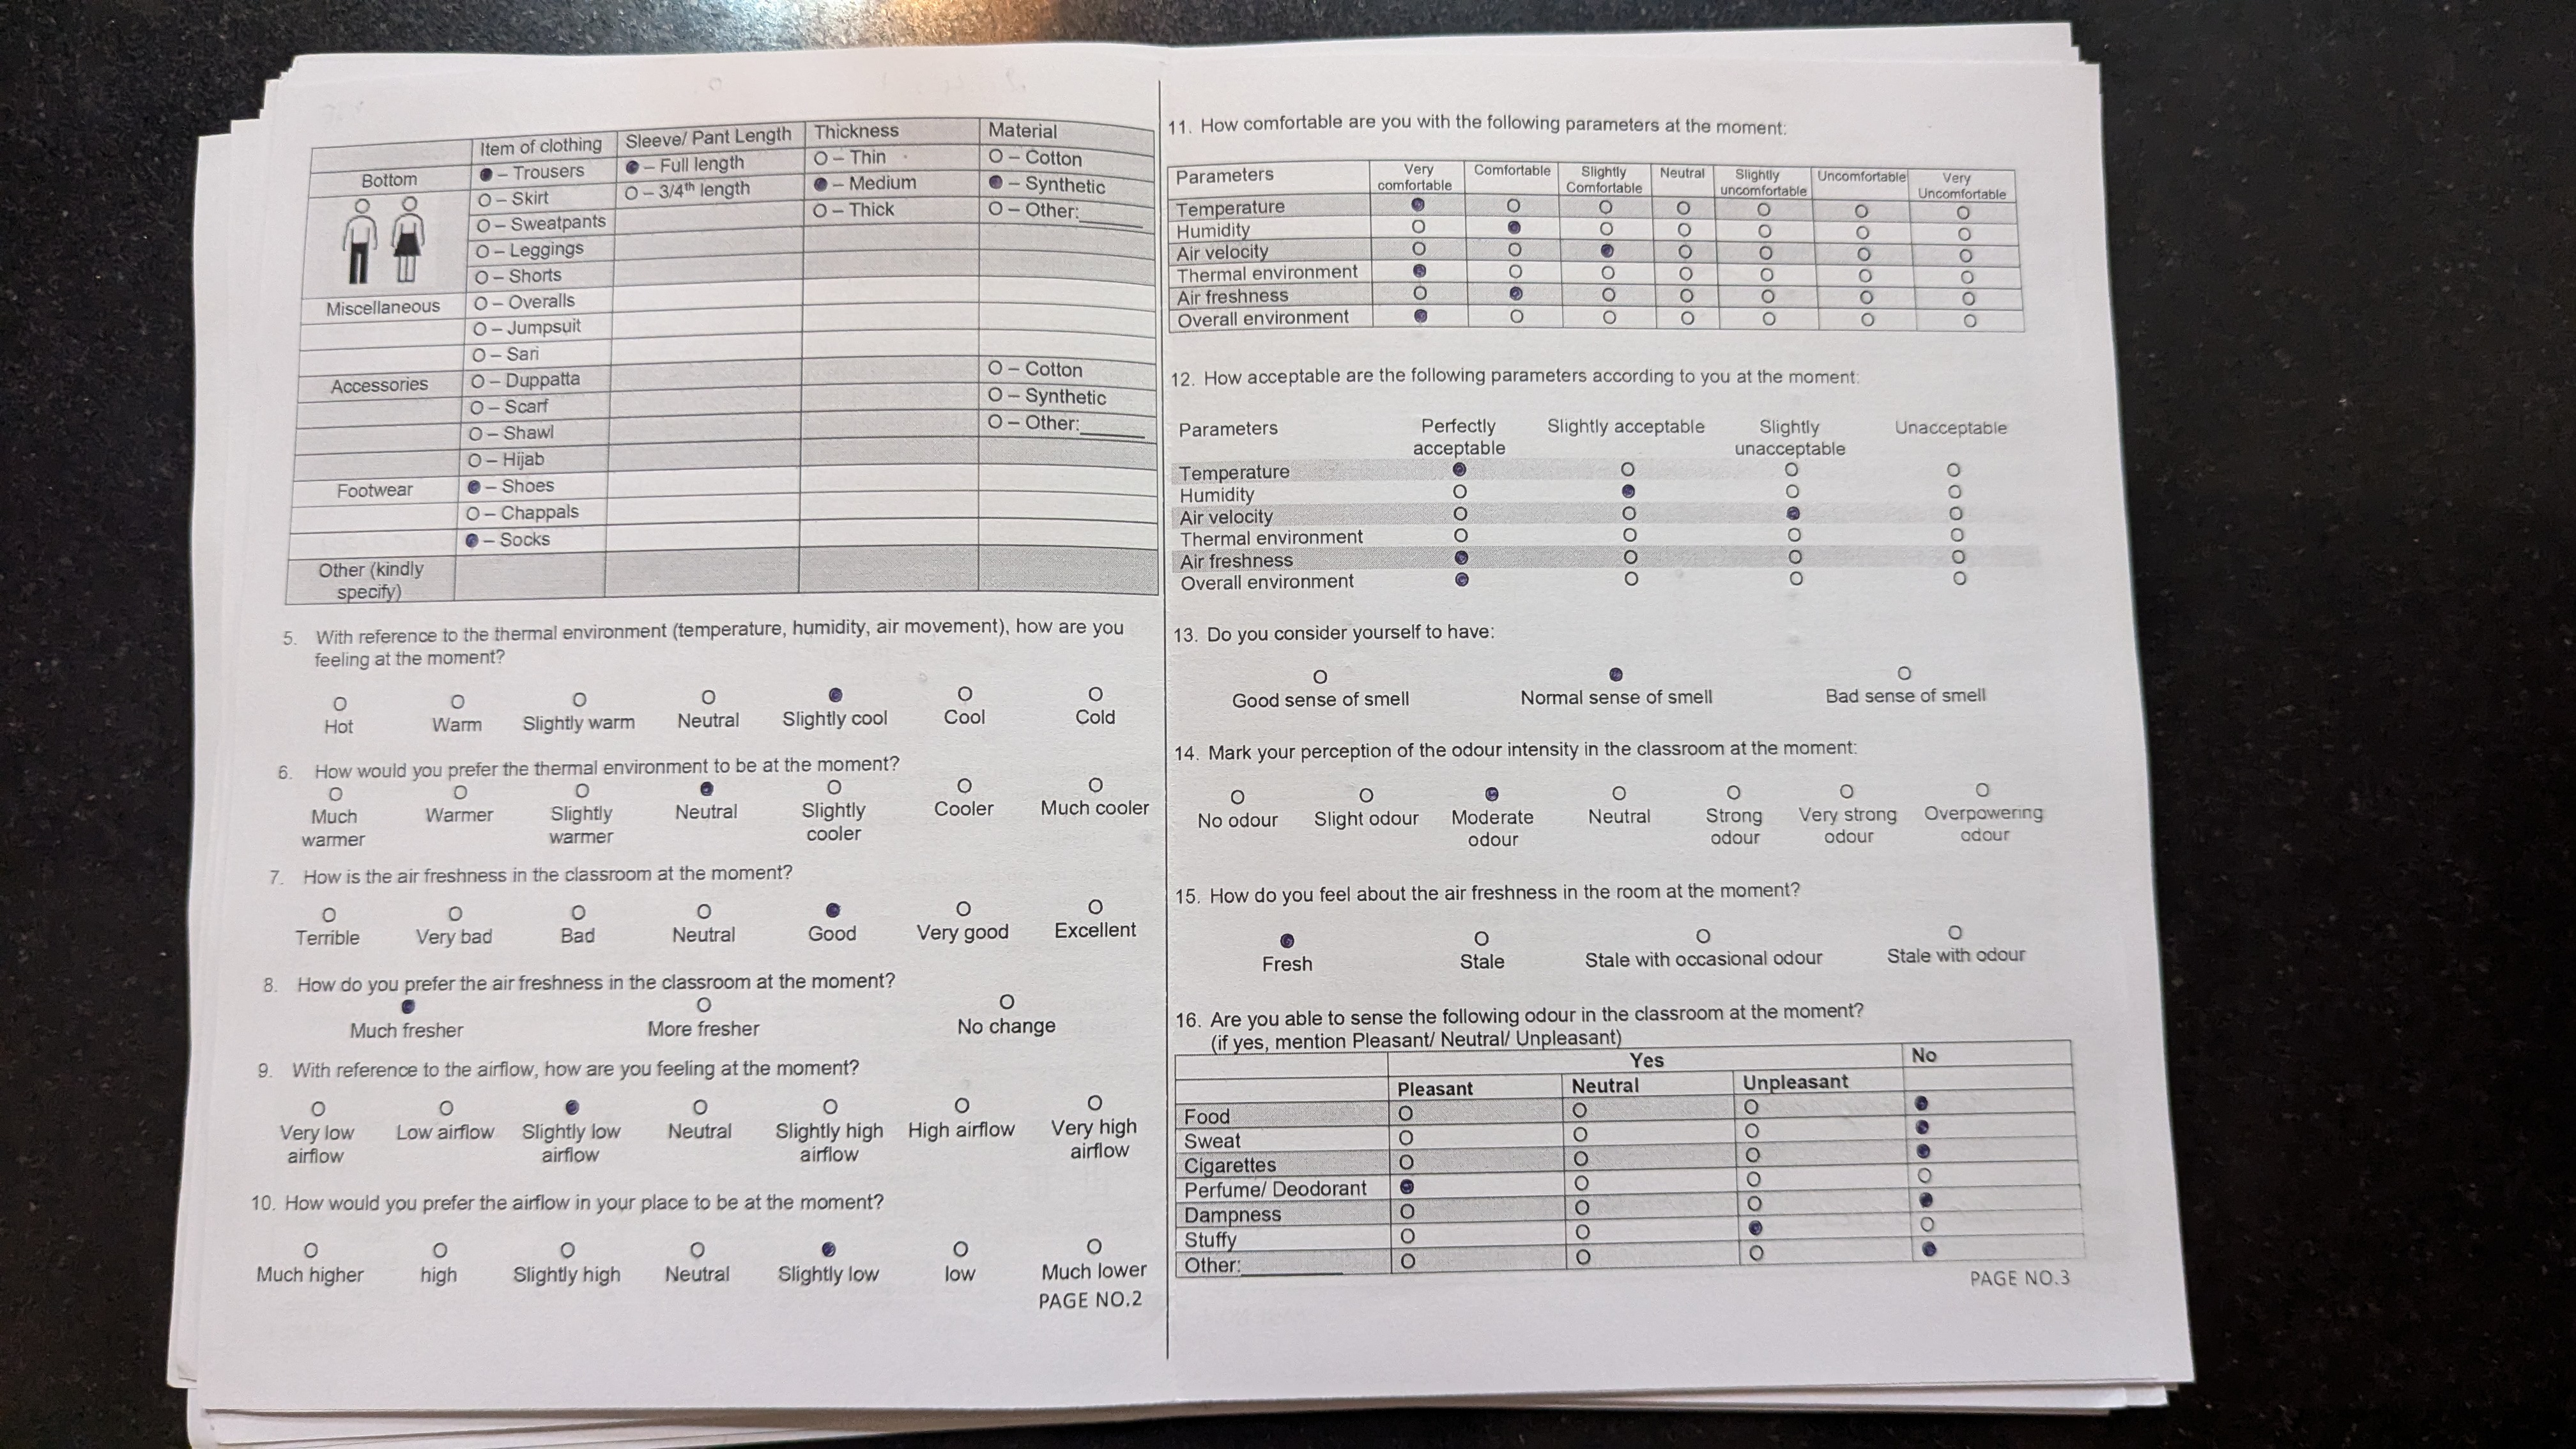 Item of clothing Sleeve/ Pant Length Thickness Material
Bottom
● – Trousers ● – Full length O – Thin O – Cotton
O – Skirt O – 3/4th length ● – Medium ● – Synthetic
O – Sweatpants O – Thick O – Other:______
O – Leggings
O – Shorts
Miscellaneous O – Overalls
O – Jumpsuit
O – Sari
Accessories O – Duppatta O – Cotton
O – Scarf O – Synthetic
O – Shawl O – Other:______
O – Hijab
Footwear ● – Shoes
O – Chappals
● – Socks
Other (kindly
specify)
5. With reference to the thermal environment (temperature, humidity, air movement), how are you
feeling at the moment?
O O O O ● O O
Hot Warm Slightly warm Neutral Slightly cool Cool Cold
6. How would you prefer the thermal environment to be at the moment?
O O O ● O O O
Much Warmer Slightly Neutral Slightly Cooler Much cooler
warmer warmer cooler
7. How is the air freshness in the classroom at the moment?
O O O O ● O O
Terrible Very bad Bad Neutral Good Very good Excellent
8. How do you prefer the air freshness in the classroom at the moment?
● O O
Much fresher More fresher No change
9. With reference to the airflow, how are you feeling at the moment?
O O ● O O O O
Very low Low airflow Slightly low Neutral Slightly high High airflow Very high
airflow airflow airflow airflow
10. How would you prefer the airflow in your place to be at the moment?
O O O O ● O O
Much higher high Slightly high Neutral Slightly low low Much lower
PAGE NO.2
11. How comfortable are you with the following parameters at the moment:
Parameters Very Comfortable Slightly Neutral Slightly Uncomfortable Very
comfortable Comfortable uncomfortable Uncomfortable
Temperature ● O O O O O O
Humidity O ● O O O O O
Air velocity O O ● O O O O
Thermal environment ● O O O O O O
Air freshness O ● O O O O O
Overall environment ● O O O O O O
12. How acceptable are the following parameters according to you at the moment:
Parameters Perfectly Slightly acceptable Slightly Unacceptable
acceptable unacceptable
Temperature ● O O O
Humidity O ● O O
Air velocity O O ● O
Thermal environment O O O O
Air freshness ● O O O
Overall environment ● O O O
13. Do you consider yourself to have:
O ● O
Good sense of smell Normal sense of smell Bad sense of smell
14. Mark your perception of the odour intensity in the classroom at the moment:
O O ● O O O O
No odour Slight odour Moderate Neutral Strong Very strong Overpowering
odour odour odour odour
15. How do you feel about the air freshness in the room at the moment?
● O O O
Fresh Stale Stale with occasional odour Stale with odour
16. Are you able to sense the following odour in the classroom at the moment?
(if yes, mention Pleasant/ Neutral/ Unpleasant)
Yes No
Pleasant Neutral Unpleasant
Food O O O ●
Sweat O O O ●
Cigarettes O O O ●
Perfume/ Deodorant ● O O O
Dampness O O O ●
Stuffy O O ● O
Other:__________ O O O ●
PAGE NO.3